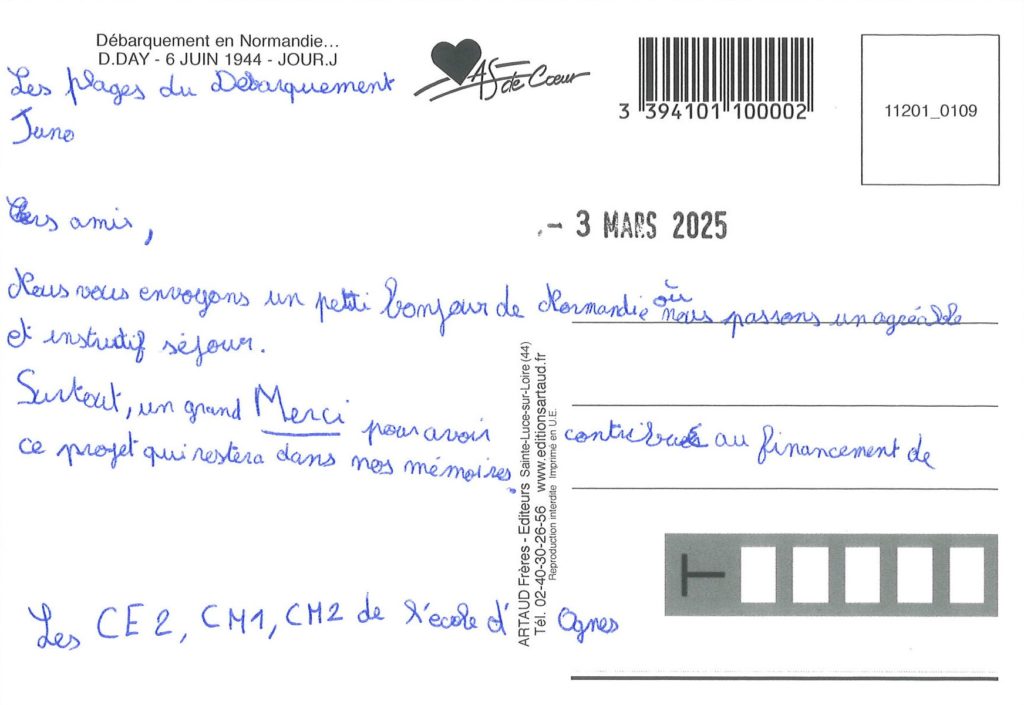 Débarquement en Normandie...
D.DAY - 6 JUIN 1944 - JOUR.J
Les plages du Débarquement
Juno
As de Coeur
3 394101 100002
11201_0109
- 3 MARS 2025
Chers amis,
Nous vous envoyons un petit bonjour de Normandie où nous passons un agréable
et instructif séjour.
Surtout, un grand Merci pour avoir contribué au financement de
ce projet qui restera dans nos mémoires.
Les CE2, CM1, CM2 de l'école d'Ognes
ARTAUD Frères - Editeurs Sainte-Luce-sur-Loire (44)
Tél. 02-40-30-26-56 www.editionsartaud.fr
Reproduction interdite Imprimé en U.E.
T